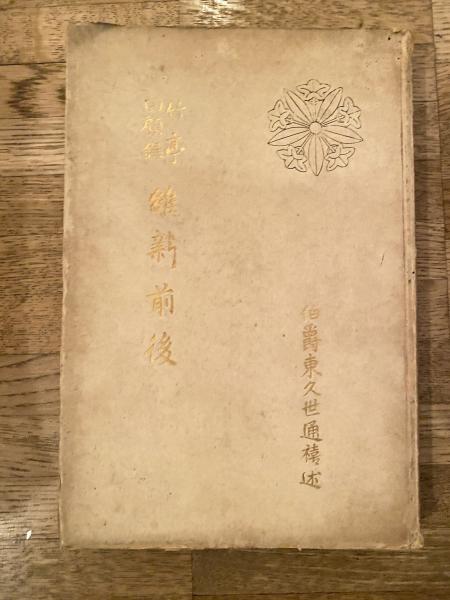 伯爵東久世通禧述
竹亭
回顧録
維新前後